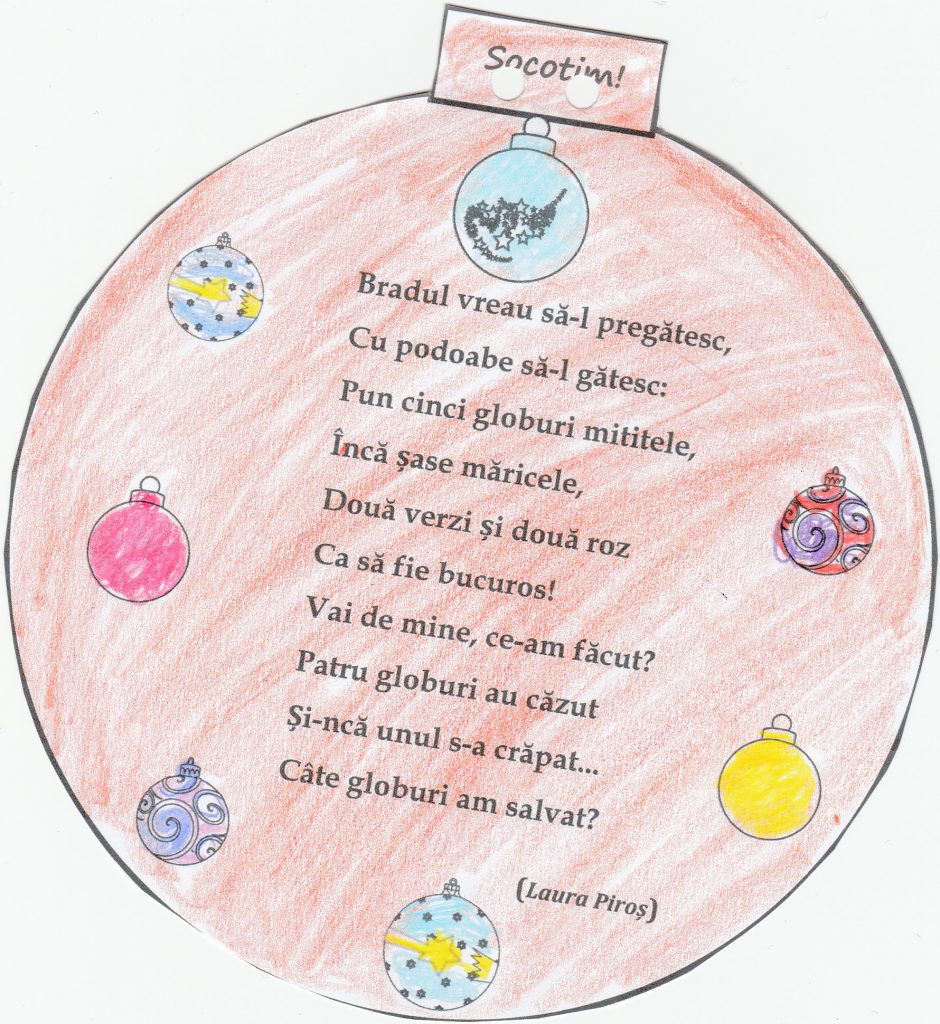 Socotim!
Bradul vreau să-l pregătesc,
Cu podoabe să-l gătesc:
Pun cinci globuri mititele,
Încă șase măricele,
Două verzi și două roz
Ca să fie bucuros!
Vai de mine, ce-am făcut?
Patru globuri au căzut
Și-ncă unul s-a crăpat...
Câte globuri am salvat?
(Laura Piroș)